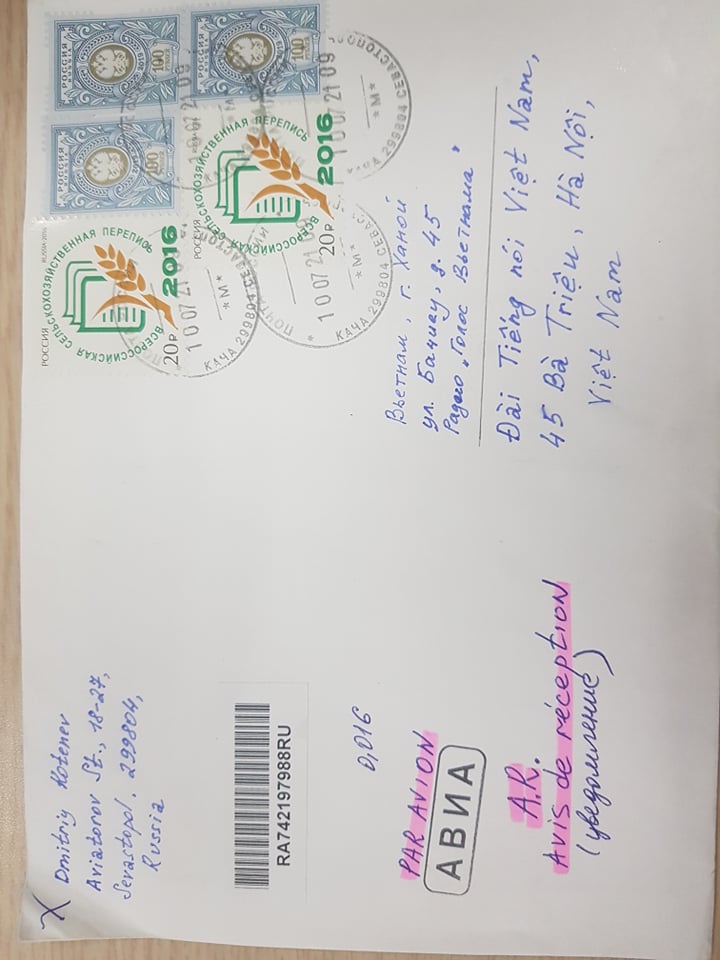 Dmitriy Kotenev
Aviatorov St., 18-27,
Sevastopol, 299804,
Russia
РОССИЯ
RUSSIA 2016
ВСЕРОССИЙСКАЯ СЕЛЬСКОХОЗЯЙСТВЕННАЯ ПЕРЕПИСЬ
2016
20р
РОССИЯ
ВСЕРОССИЙСКАЯ СЕЛЬСКОХОЗЯЙСТВЕННАЯ ПЕРЕПИСЬ
2016
20р
РОССИЯ
100
РОССИЯ
100
100
ПОЧТА РОССИИ
10 07 21 09
*М*
КАЧА 299804 СЕВАСТОПОЛ
10 07 21 09
*М*
КАЧА 299804 СЕВАСТОПО
10 07 21 09
*М*
КАЧА 299804 СЕВАСТОПО
RA742197988RU
0,016
PAR AVION
АВИА
A.R.
Avis de réception
(уведомление)
Вьетнам, г. Ханой
ул. Бачиеу, д. 45
Радио „Голос Вьетнама"
Đài Tiếng nói Việt Nam,
45 Bà Triệu, Hà Nội,
Việt Nam